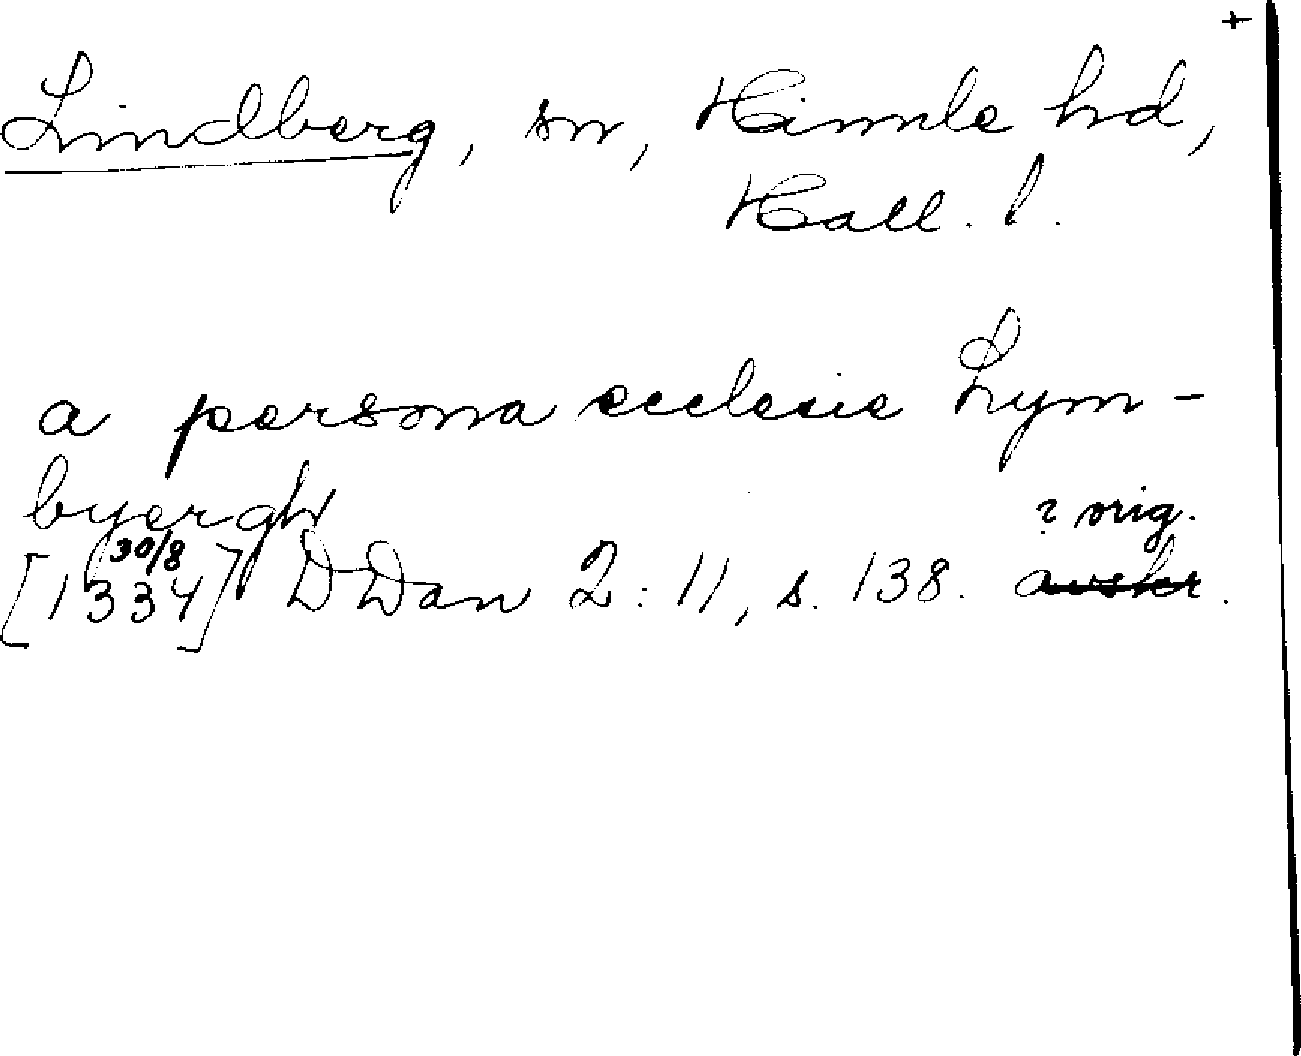 +
Lindberg, sn, Himle hd,
Hall. l.
a persona ecclesie Lym-
byergh
? orig.
30/8
[1334] DDan 2:11, s. 138. avskr.